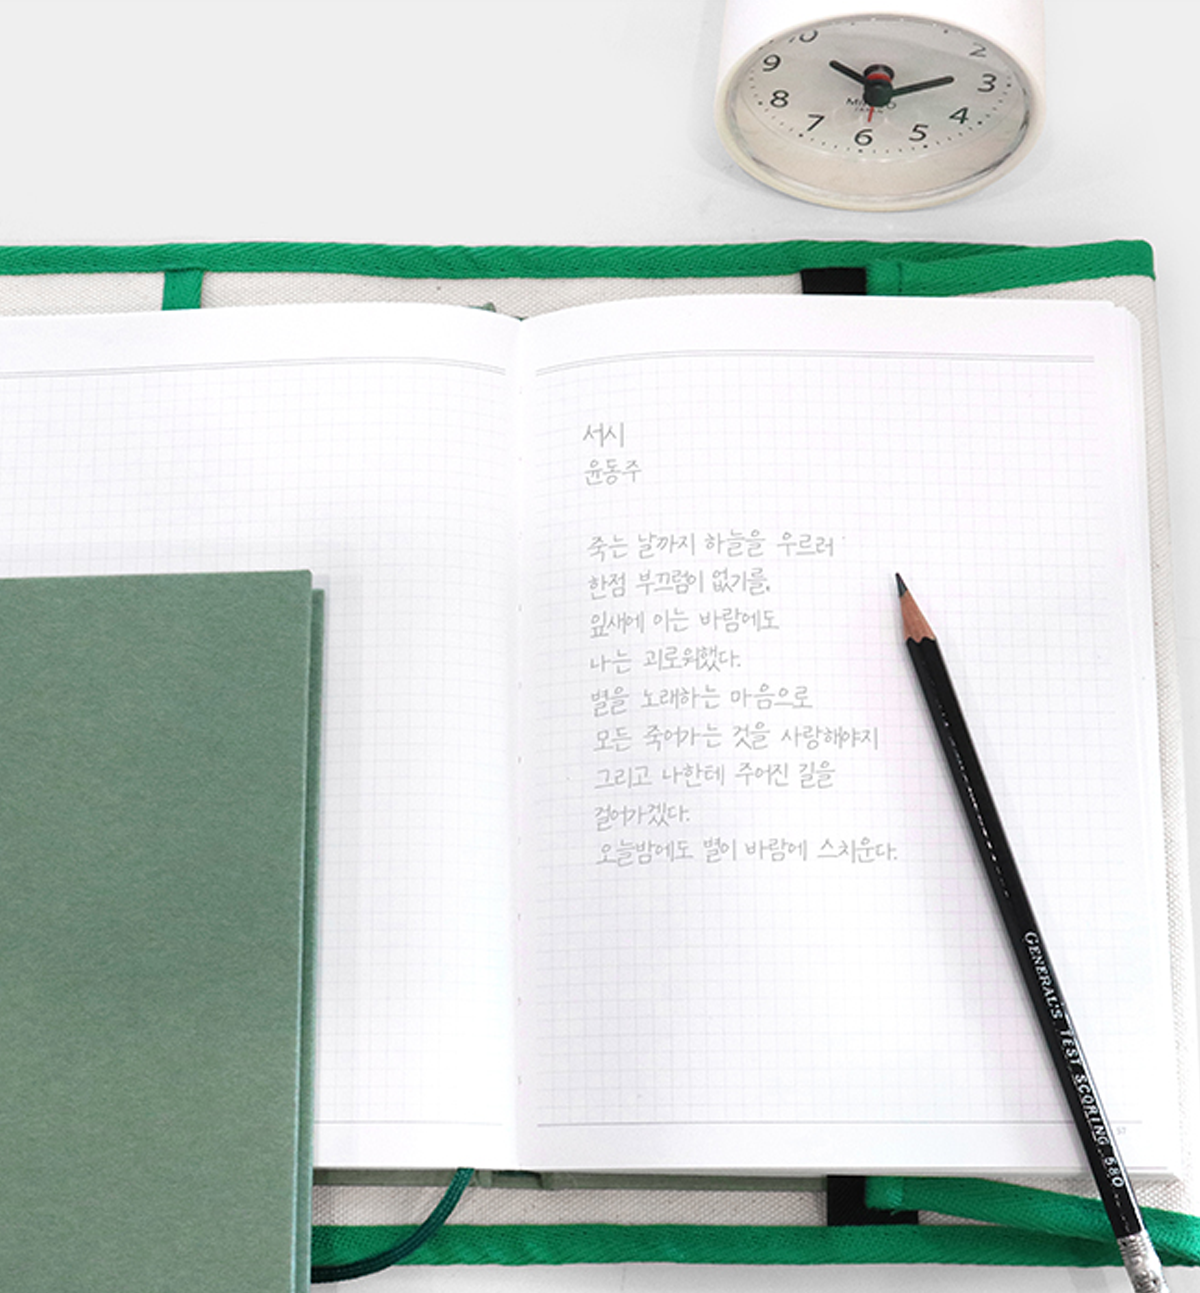 10 2
9 3
8 4
7 6 5
서시
윤동주
죽는 날까지 하늘을 우르러
한점 부끄럼이 없기를,
잎새에 이는 바람에도
나는 괴로워했다.
별을 노래하는 마음으로
모든 죽어가는 것을 사랑해야지
그리고 나한테 주어진 길을
걸어가겠다.
오늘밤에도 별이 바람에 스치운다.
GENERAL'S TEST SCORING 580